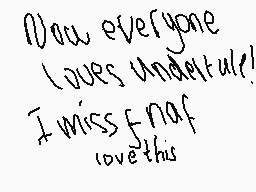 Now everyone
loves undertale!
I miss fnaf
love this